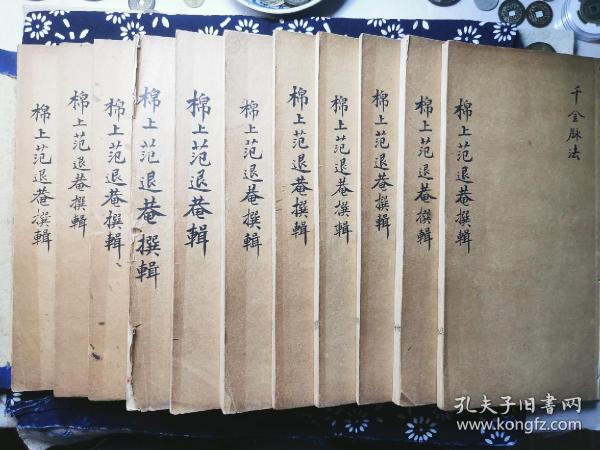 千金脉法
棉上范退菴撰輯
棉上范退菴撰輯
棉上范退菴撰輯
棉上范退菴撰輯
棉上范退菴撰輯
棉上范退菴撰輯
棉上范退菴輯
棉上范退菴撰輯
棉上范退菴撰輯
棉上范退菴撰輯
棉上范退菴撰輯
孔夫子旧書网
www.kongfz.com